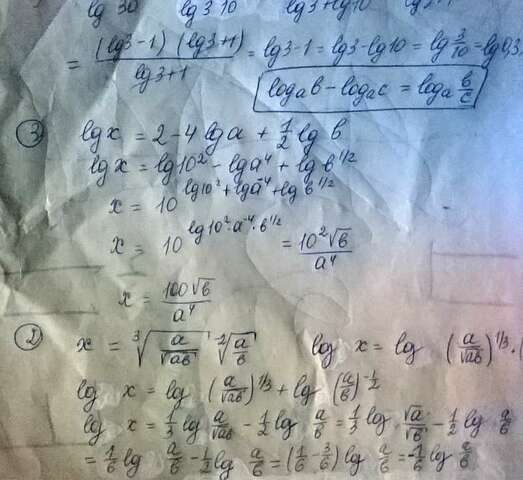 lg 30 lg 3·10 lg3+lg10 lg3+1
= (lg3-1)(lg3+1)/lg3+1 = lg3-1 = lg3-lg10 = lg 3/10 = lg0,3
logₐb - logₐc = logₐ b/c
③ lg x = 2-4 lg a + 1/2 lg b
lg x = lg10² - lg a⁴ + lg b^1/2
x = 10^(lg10² + lg a⁻⁴ + lg b^1/2)
x = 10^(lg10²·a⁻⁴·b^1/2) = 10²√b/a⁴
x = 100√b/a⁴
② x = ³√(a/√ab) · ⁻²√(a/b) log x = log (a/√ab)^1/3 · (
log x = log (a/√ab)^1/3 + log (a/b)^-1/2
log x = 1/3 log a/√ab - 1/2 log a/b = 1/3 log √a/√b - 1/2 log a/b
= 1/6 log a/b - 1/2 log a/b = (1/6 - 3/6) log a/b = -1/6 log a/b